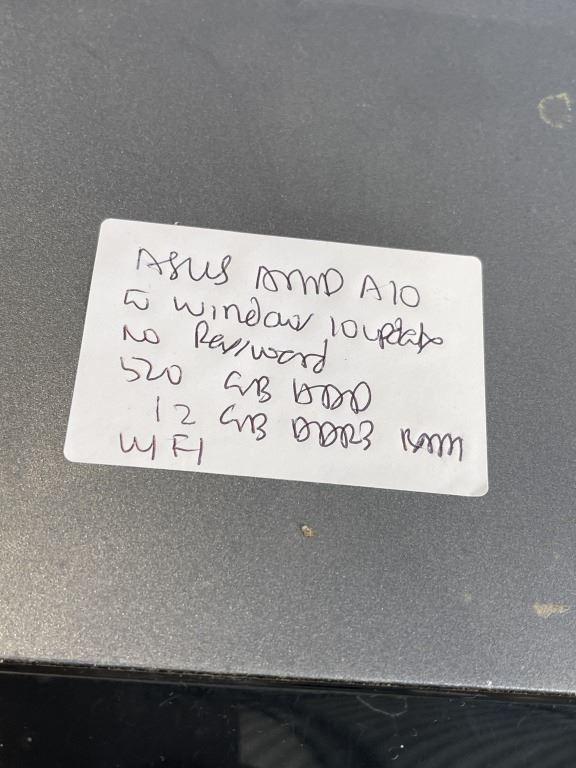 ASUS AMD A10
window 10 update
No Password
520 GB HDD
12 GB DDR3 RAM
WIFI